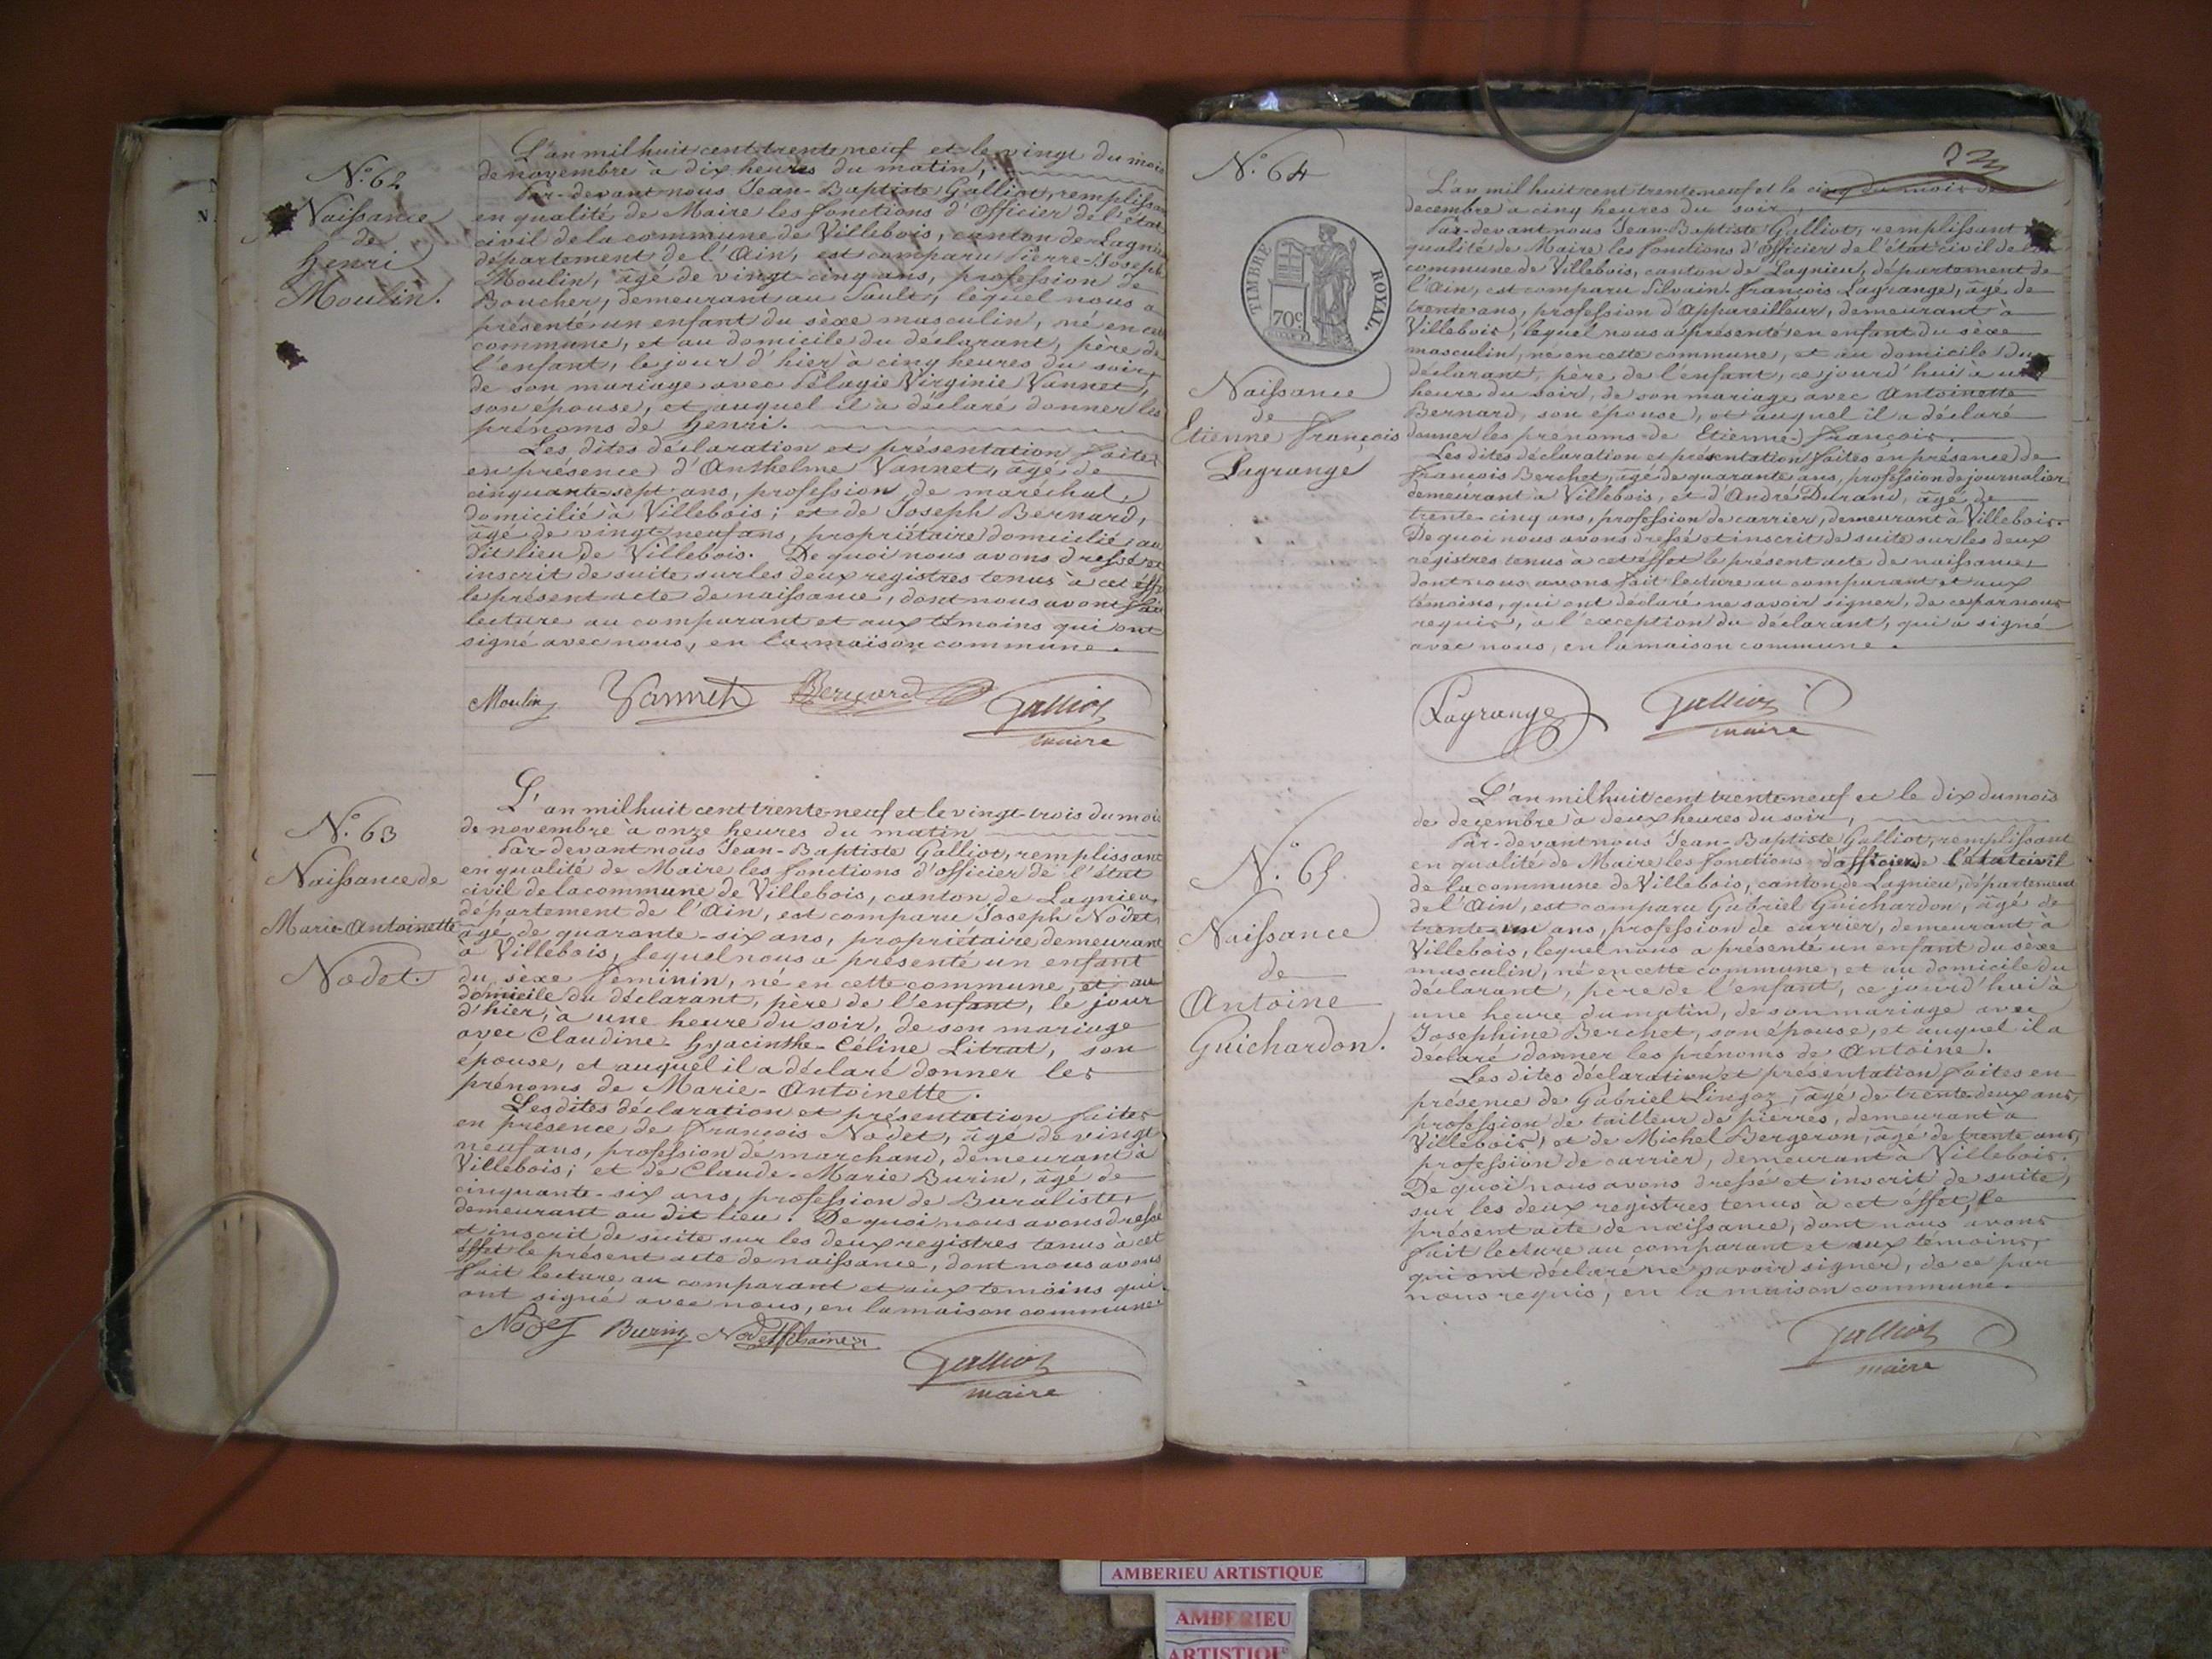 N.° 62
Naissance
de
Henri
Moulin.
L'an mil huit cent trente neuf et le vingt du mois
de novembre à dix heures du matin,
Par-devant nous Jean-Baptiste Galliot, remplissant
en qualité de Maire les fonctions d'Officier de l'état
civil de la commune de Villebois, canton de Lagnieu
département de l'Ain, est comparu Pierre-Joseph
Moulin, âgé de vingt-cinq ans, profession de
Boucher, demeurant au Sault, lequel nous a
présenté un enfant du sèxe masculin, né en cette
commune, et au domicile du déclarant, père de
l'enfant, le jour d'hier à cinq heures du soir,
de son mariage avec Pélagie Virginie Vannet,
son épouse, et auquel il a déclaré donner les
prénoms de Henri.
Les dites déclaration et présentation faites
en présence d'Anthelme Vannet, âgé de
cinquante-sept ans, profession de maréchal,
domicilié à Villebois; et de Joseph Bernard,
âgé de vingt neuf ans, propriétaire domicilié au
dit lieu de Villebois. De quoi nous avons dressé et
inscrit de suite sur les deux registres tenus à cet éffet
le présent acte de naissance, dont nous avons fait
lecture au comparant et aux témoins qui ont
signé avec nous, en la maison commune.
Moulin Vannet Bernard Galliot
maire
N.° 63
Naissance de
Marie-Antoinette
Nodet.
L'an mil huit cent trente neuf et le vingt trois du mois
de novembre à onze heures du matin
Par-devant nous Jean-Baptiste Galliot, remplissant
en qualité de Maire les fonctions d'officier de l'état
civil de la commune de Villebois, canton de Lagnieu,
département de l'Ain, est comparu Joseph Nodet,
âgé de quarante-six ans, propriétaire demeurant
à Villebois, lequel nous a présenté un enfant
du sèxe féminin, né en cette commune, et au
domicile du déclarant, père de l'enfant, le jour
d'hier, à une heure du soir, de son mariage
avec Claudine-Hyacinthe-Céline Litrat, son
épouse, et auquel il a déclaré donner les
prénoms de Marie-Antoinette.
Les dites déclaration et présentation faites
en présence de François Nodet, âgé de vingt
neuf ans, profession de marchand, demeurant à
Villebois; et de Claude-Marie Burin, âgé de
cinquante-six ans, profession de Buraliste,
demeurant au dit lieu. De quoi nous avons dressé
et inscrit de suite sur les deux registres tenus à cet
éffet le présent acte de naissance, dont nous avons
fait lecture au comparant et aux témoins qui
ont signé avec nous, en la maison commune.
Nodet Burin Nodet
Galliot
maire
N.° 64
TIMBRE ROYAL.
70c
Naissance
de
Etienne François
Lagrange
L'an mil huit cent trente neuf et le cinq du mois de
decembre a cinq heures du soir,
Par-devant nous Jean-Baptiste Galliot, remplissant
qualité de Maire les fonctions d'Officier de l'état civil de la
commune de Villebois, canton de Lagnieu, département de
l'Ain, est comparu Silvain-François Lagrange, âgé de
trente ans, profession d'Appareilleur, demeurant à
Villebois, lequel nous a présenté en enfant du sèxe
masculin, né en cette commune, et au domicile du
déclarant, père de l'enfant, ce jourd'hui a une
heure du soir, de son mariage avec Antoinette
Bernard, son épouse, et auquel il a déclaré
donner les prénoms de Etienne-François.
Les dites déclaration et présentation faites en présence de
François Berchet, âgé de quarante ans, profession de journalier
demeurant a Villebois, et d'André Durand, âgé de
trente-cinq ans, profession de carrier, demeurant à Villebois.
De quoi nous avons dressé et inscrit de suite sur les deux
registres tenus à cet éffet le présent acte de naissance,
dont nous avons fait lecture au comparant et aux
témoins, qui ont déclaré ne savoir signer, de ce par nous
requis, a l'éxception du déclarant, qui a signé
avec nous, en la maison commune.
Lagrange Galliot
maire
N.° 65
Naissance
de
Antoine
Guichardon.
L'an mil huit cent trente neuf et le dix du mois
de decembre a deux heures du soir,
Par-devant nous Jean-Baptiste Galliot, remplissant
en qualité de Maire les fonctions d'officier de l'état civil
de la commune de Villebois, canton de Lagnieu, département
de l'Ain, est comparu Gabriel Guichardon, âgé de
trente-un ans, profession de carrier, demeurant à
Villebois, lequel nous a présenté un enfant du sèxe
masculin, né en cette commune, et au domicile du
déclarant, père de l'enfant, ce jourd'hui à
une heure du matin, de son mariage avec
Josephine Berchet, son épouse, et auquel il a
déclaré donner les prénoms de Antoine.
Les dites déclaration et présentation faites en
présence de Gabriel Lingoz, âgé de trente-deux ans,
profession de tailleur de pierres, demeurant à
Villebois, et de Michel Bergeron, âgé de trente ans,
profession de carrier, demeurant a Villebois.
De quoi nous avons dressé et inscrit de suite,
sur les deux registres tenus à cet éffet, le
présent acte de naissance, dont nous avons
fait lecture au comparant et aux témoins,
qui ont déclaré ne savoir signer, de ce par
nous requis, en la maison commune.
Galliot
maire
AMBERIEU ARTISTIQUE
AMBERIEU
ARTISTIQUE